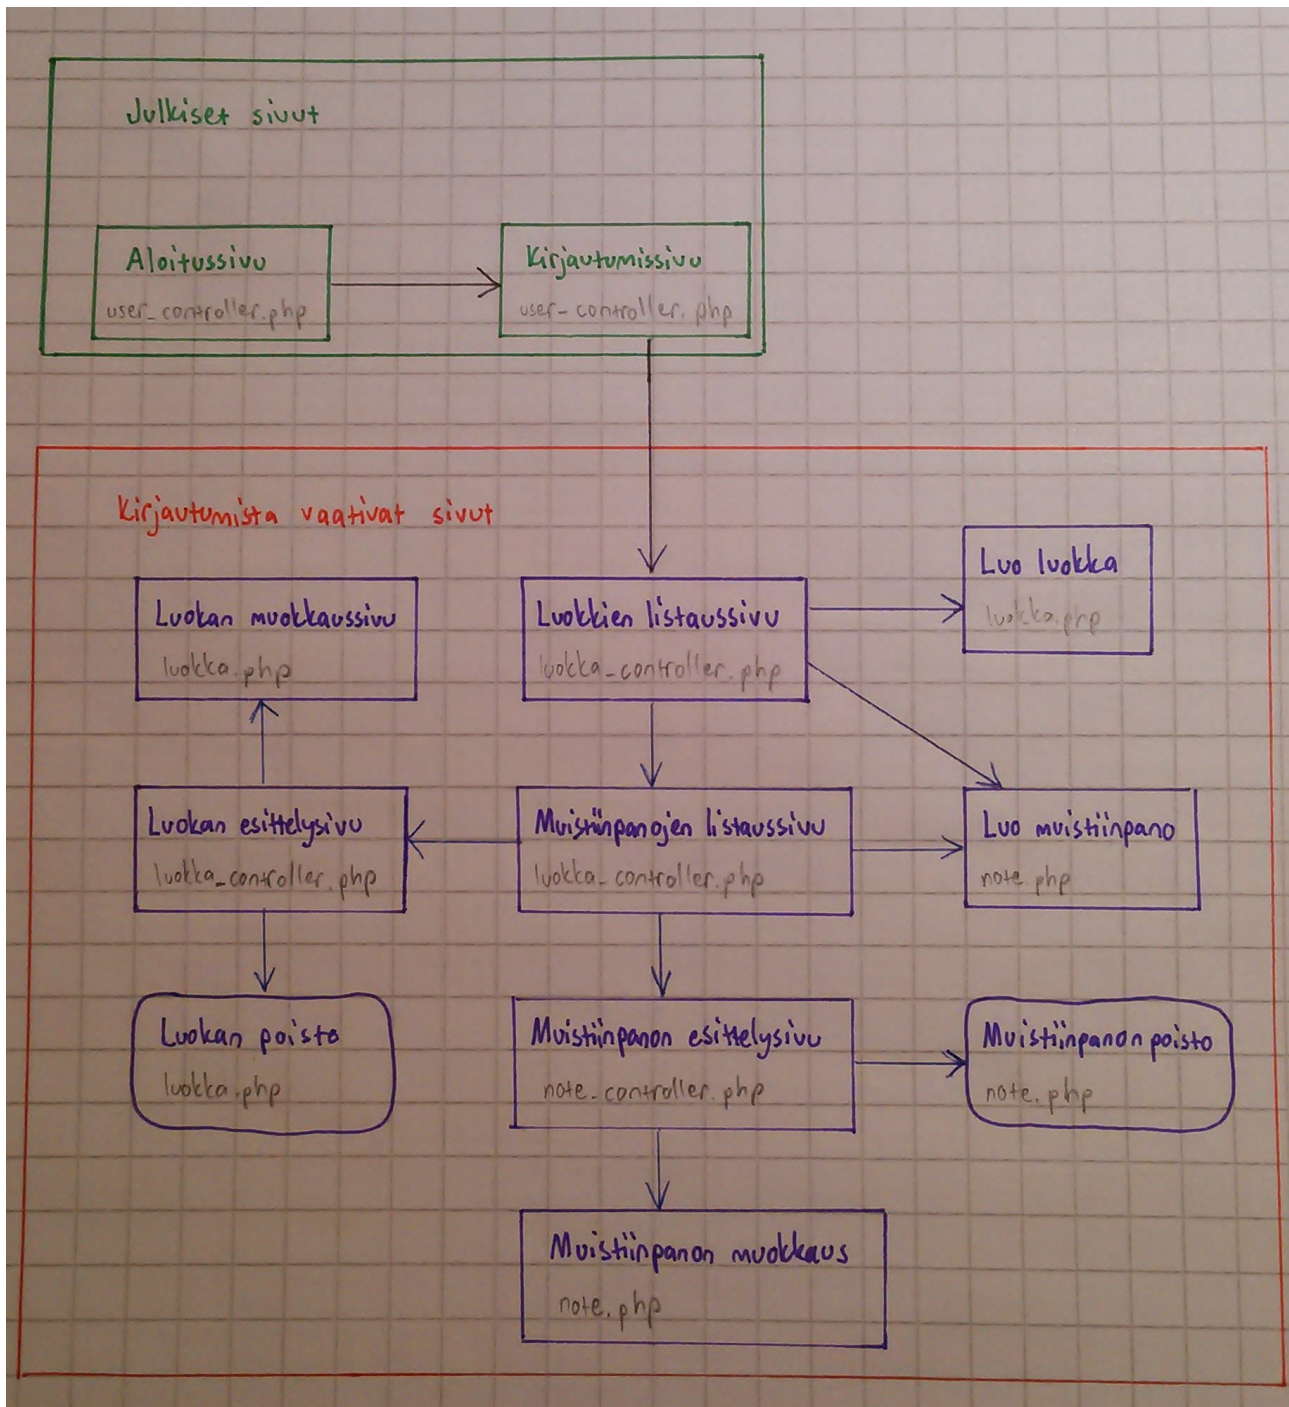 Julkiset sivut
Aloitussivu
user_controller.php
Kirjautumissivu
user_controller.php
Kirjautumista vaativat sivut
Luokan muokkaussivu
luokka.php
Luokkien listaussivu
luokka_controller.php
Luo luokka
luokka.php
Luokan esittelysivu
luokka_controller.php
Muistiinpanojen listaussivu
luokka_controller.php
Luo muistiinpano
note.php
Luokan poisto
luokka.php
Muistiinpanon esittelysivu
note_controller.php
Muistiinpanon poisto
note.php
Muistiinpanon muokkaus
note.php